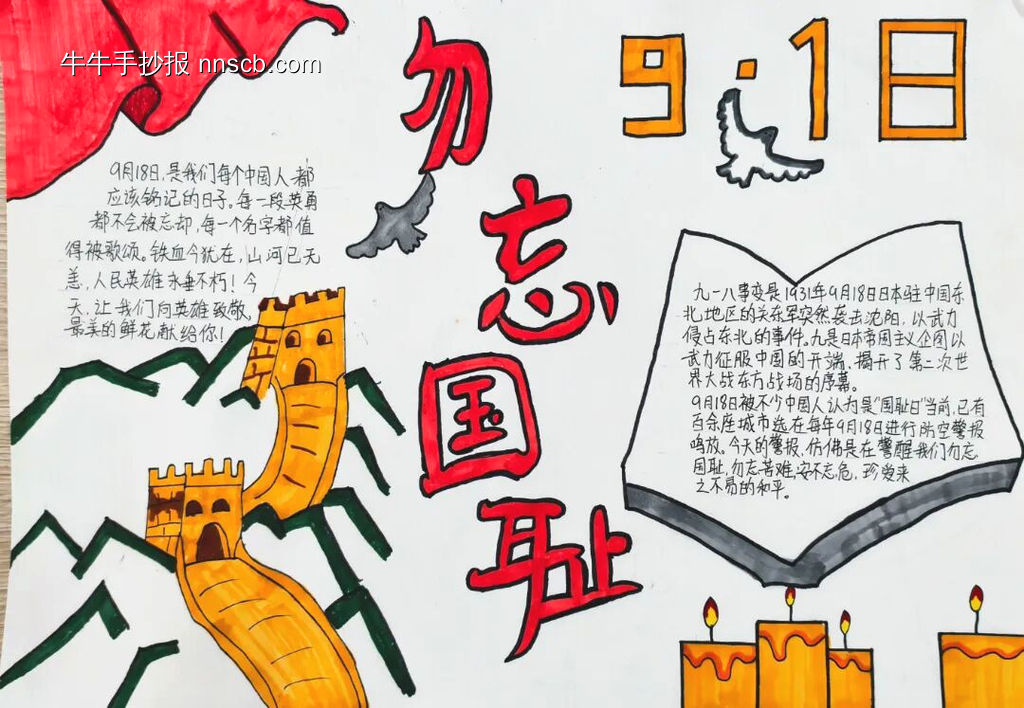 牛牛手抄报 nnscb.com
勿
忘
国
耻
9·1日
9月18日,是我们每个中国人都
应该铭记的日子。每一段英勇
都不会被忘却,每一个名字都值
得被歌颂。铁血今犹在,山河已无
恙,人民英雄永垂不朽!今
天,让我们向英雄致敬,
最美的鲜花献给你!
九一八事变是1931年9月18日日本驻中国东
北地区的关东军突然袭击沈阳,以武力
侵占东北的事件。九是日本帝国主义企图以
武力征服中国的开端,揭开了第二次世
界大战东方战场的序幕。
9月18日被不少中国人认为是"国耻日"当前,已有
百余座城市选在每年9月18日进行防空警报
鸣放。今天的警报,仿佛是在警醒我们勿忘
国耻,勿忘苦难,安不忘危,珍爱来
之不易的和平。